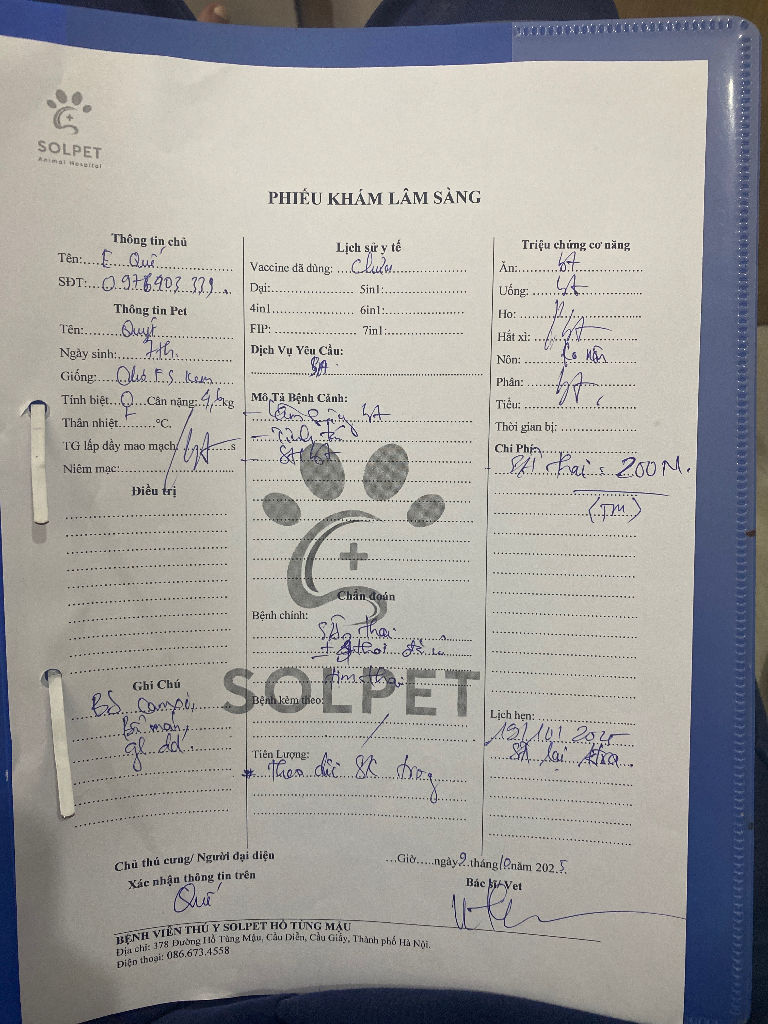 SOLPET
Animal Hospital
PHIẾU KHÁM LÂM SÀNG
Thông tin chủ
Tên: E Quế
SĐT: 0976903 339
Thông tin Pet
Tên: Quýt
Ngày sinh: 7th.
Giống:
Tính biệt ♀ Cân nặng: 4,6kg
Thân nhiệt........°C.
TG lấp đầy mao mạch ........s
Niêm mạc:
Điều trị
Ghi Chú
BS canxi,
gl. dd.
Lịch sử y tế
Vaccine đã dùng: Chưa
Dại: 5in1:
4in1 6in1:
FIP: 7in1:
Dịch Vụ Yêu Cầu:
SA
Mô Tả Bệnh Cảnh:
Chẩn đoán
Bệnh chính:
SÂ thai
tim thai
Bệnh kèm theo:
Tiên Lượng:
* theo dõi SK
SOLPET
Triệu chứng cơ năng
Ăn: bt
Uống: bt
Ho:
Hắt xì:
Nôn:
Phân: bt
Tiểu:
Thời gian bị:
Chi Phí:
SÂ thai: 200K.
(TM)
Lịch hẹn:
19/10/2025
SÂ lại
Chủ thú cưng/ Người đại diện
Xác nhận thông tin trên
Quế
...Giờ.....ngày 9 tháng 10 năm 2025
Bác sĩ/Vet
BỆNH VIỆN THÚ Y SOLPET HỒ TÙNG MẬU
Địa chỉ: 378 Đường Hồ Tùng Mậu, Cầu Diễn, Cầu Giấy, Thành phố Hà Nội.
Điện thoại: 086.673.4558